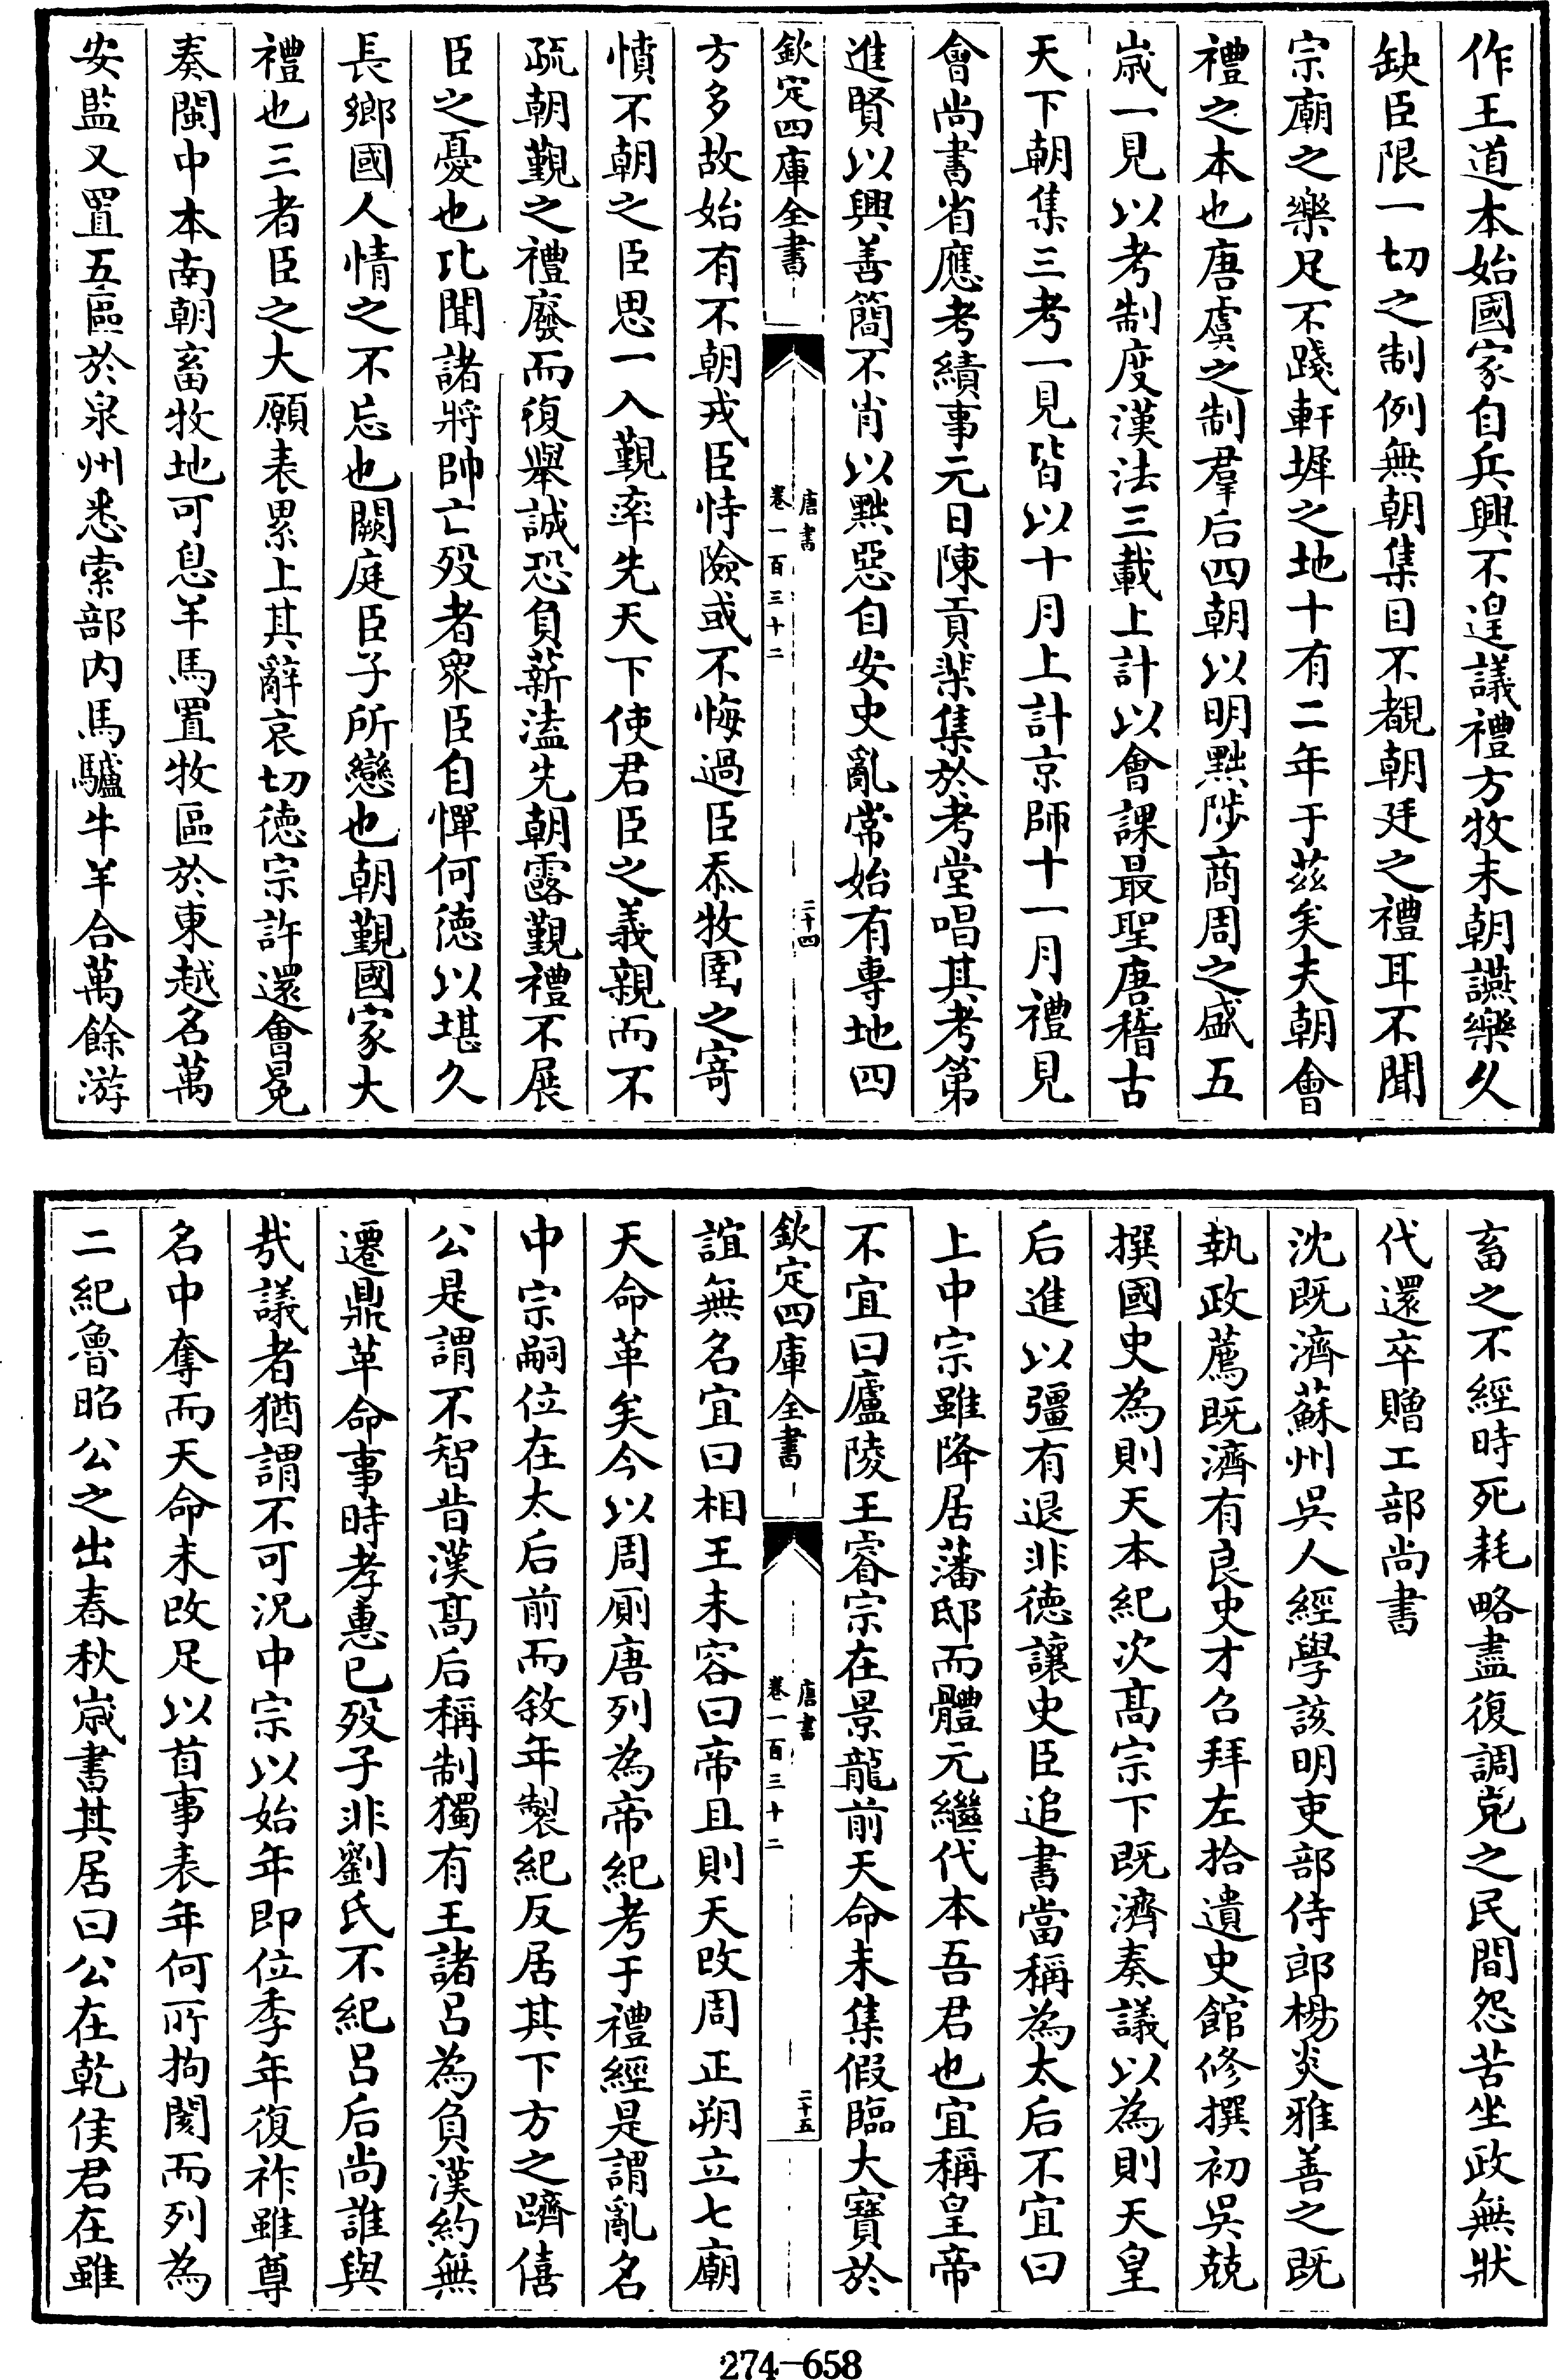 作王道本始國家自兵興不遑議禮方牧未朝讌樂久
缺臣限一切之制例無朝集目不覩朝廷之禮耳不聞
宗廟之樂足不踐軒墀之地十有二年于茲矣夫朝會
禮之本也唐虞之制羣后四朝以明黜陟商周之盛五
歳一見以考制度漢法三載上計以會課最聖唐稽古
天下朝集三考一見皆以十月上計京師十一月禮見
會尚書省應考績事元日陳貢棐集於考堂唱其考第
進賢以興善簡不肖以黜惡自安史亂常始有專地四
欽定四庫全書
唐書
卷一百三十二
二十四
方多故始有不朝戎臣恃險或不悔過臣忝牧圉之寄
憤不朝之臣思一入覲率先天下使君臣之義親而不
疏朝覲之禮廢而復舉誠恐負薪溘先朝露覲禮不展
臣之憂也比聞諸將帥亡殁者衆臣自憚何徳以堪久
長鄉國人情之不忘也闕庭臣子所戀也朝覲國家大
禮也三者臣之大願表累上其辭哀切徳宗許還會冕
奏閩中本南朝畜牧地可息羊馬置牧區於東越名萬
安監又置五區於泉州悉索部内馬驢牛羊合萬餘游
畜之不經時死耗略盡復調充之民間怨苦坐政無狀
代還卒贈工部尚書
沈既濟蘇州吳人經學該明吏部侍郎楊炎雅善之既
執政薦既濟有良史才召拜左拾遺史館修撰初吳兢
撰國史為則天本紀次髙宗下既濟奏議以為則天皇
后進以彊有退非徳讓史臣追書當稱為太后不宜曰
上中宗雖降居藩邸而體元繼代本吾君也宜稱皇帝
不宜曰廬陵王睿宗在景龍前天命未集假臨大寶於
欽定四庫全書
唐書
卷一百三十二
二十五
誼無名宜曰相王未容曰帝且則天改周正朔立七廟
天命革矣今以周厠唐列為帝紀考于禮經是謂亂名
中宗嗣位在太后前而敘年製紀反居其下方之躋僖
公是謂不智昔漢髙后稱制獨有王諸呂為負漢約無
遷鼎革命事時孝惠已殁子非劉氏不紀呂后尚誰與
哉議者猶謂不可況中宗以始年即位季年復祚雖尊
名中奪而天命未改足以首事表年何所拘閡而列為
二紀魯昭公之出春秋歳書其居曰公在乾侯君在雖
274-658